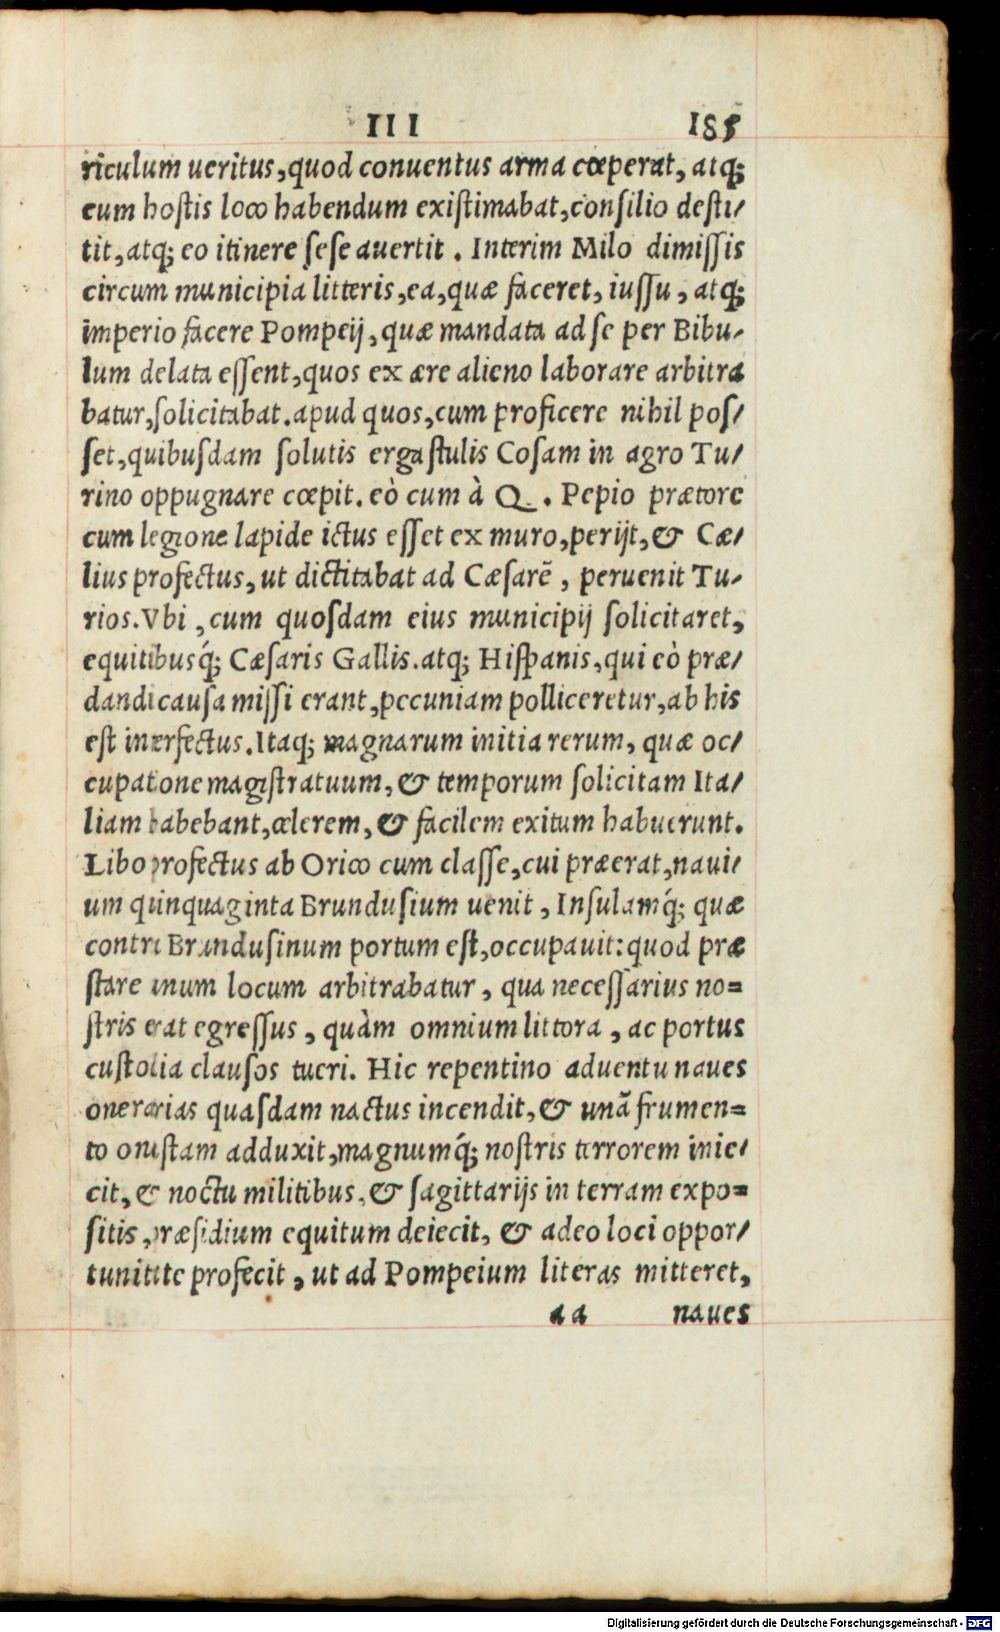 III 185
riculum ueritus, quod conuentus arma cœperat, atq;
eum hostis loco habendum existimabat, consilio desti/
tit, atq; eo itinere sese auertit. Interim Milo dimissis
circum municipia litteris, ea, quæ faceret, iussu, atq;
imperio facere Pompeij, quæ mandata ad se per Bibu-
lum delata essent, quos ex ære alieno laborare arbitra
batur, solicitabat. apud quos, cum proficere nihil pos/
set, quibusdam solutis ergastulis Cosam in agro Tu/
rino oppugnare cœpit. eò cum à Q. Pepio prætore
cum legione lapide ictus esset ex muro, perijt, & Cæ/
lius profectus, ut dictitabat ad Cæsarē, peruenit Tu-
rios. Vbi, cum quosdam eius municipij solicitaret,
equitibusq́; Cæsaris Gallis. atq; Hispanis, qui eò præ/
dandi causa missi erant, pecuniam polliceretur, ab his
est interfectus. Itaq; magnarum initia rerum, quæ oc/
cupatione magistratuum, & temporum solicitam Ita/
liam habebant, celerem, & facilem exitum habuerunt.
Libo profectus ab Orico cum classe, cui præerat, naui/
um quinquaginta Brundusium uenit, Insulamq́; quæ
contra Brundusinum portum est, occupauit: quod præ
stare unum locum arbitrabatur, qua necessarius no=
stris erat egressus, quàm omnium littora, ac portus
custodia clausos tueri. Hic repentino aduentu naues
onerarias quasdam nactus incendit, & unā frumen=
to onustam adduxit, magnumq́; nostris terrorem inie/
cit, & noctu militibus, & sagittarijs in terram expo=
sitis, præsidium equitum deiecit, & adeo loci oppor/
tunitate profecit, ut ad Pompeium literas mitteret,
aa naues
Digitalisierung gefördert durch die Deutsche Forschungsgemeinschaft - DFG